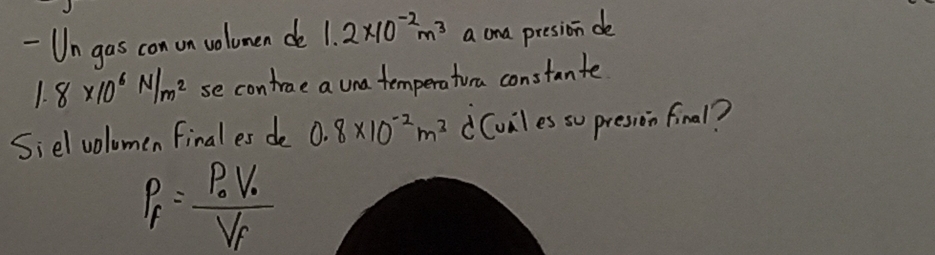 - Un gas con un volumen de 1.2×10⁻² m³ a una presión de
1.8 ×10⁶ N/m² se contrae a una temperatura constante.
Si el volumen final es de 0.8×10⁻² m³ ¿Cuál es su presión final?
P_f = P₀V₀ / V_f